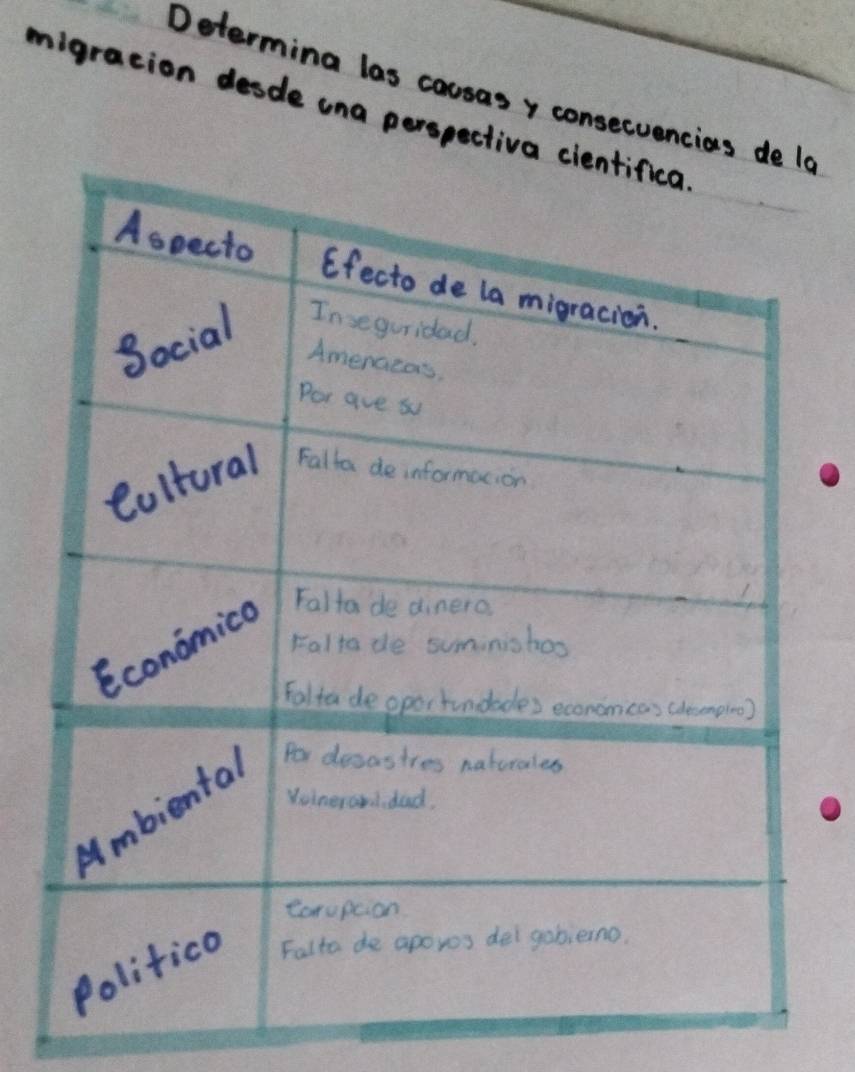 Determina las causas y consecuencias de la
migracion desde una perspectiva cientifica.
Aspecto
Efecto de la migración.
Social
Inseguridad.
Amenazas.
Por que su
Cultural
Falta de información.
Económico
Falta de dinero
Falta de suministros
Falta de oportundades económicas (desempleo)
Ambiental
Por desastres naturales
Vulnerabilidad.
Politico
Corupcion
Falta de apoyos del gobierno.